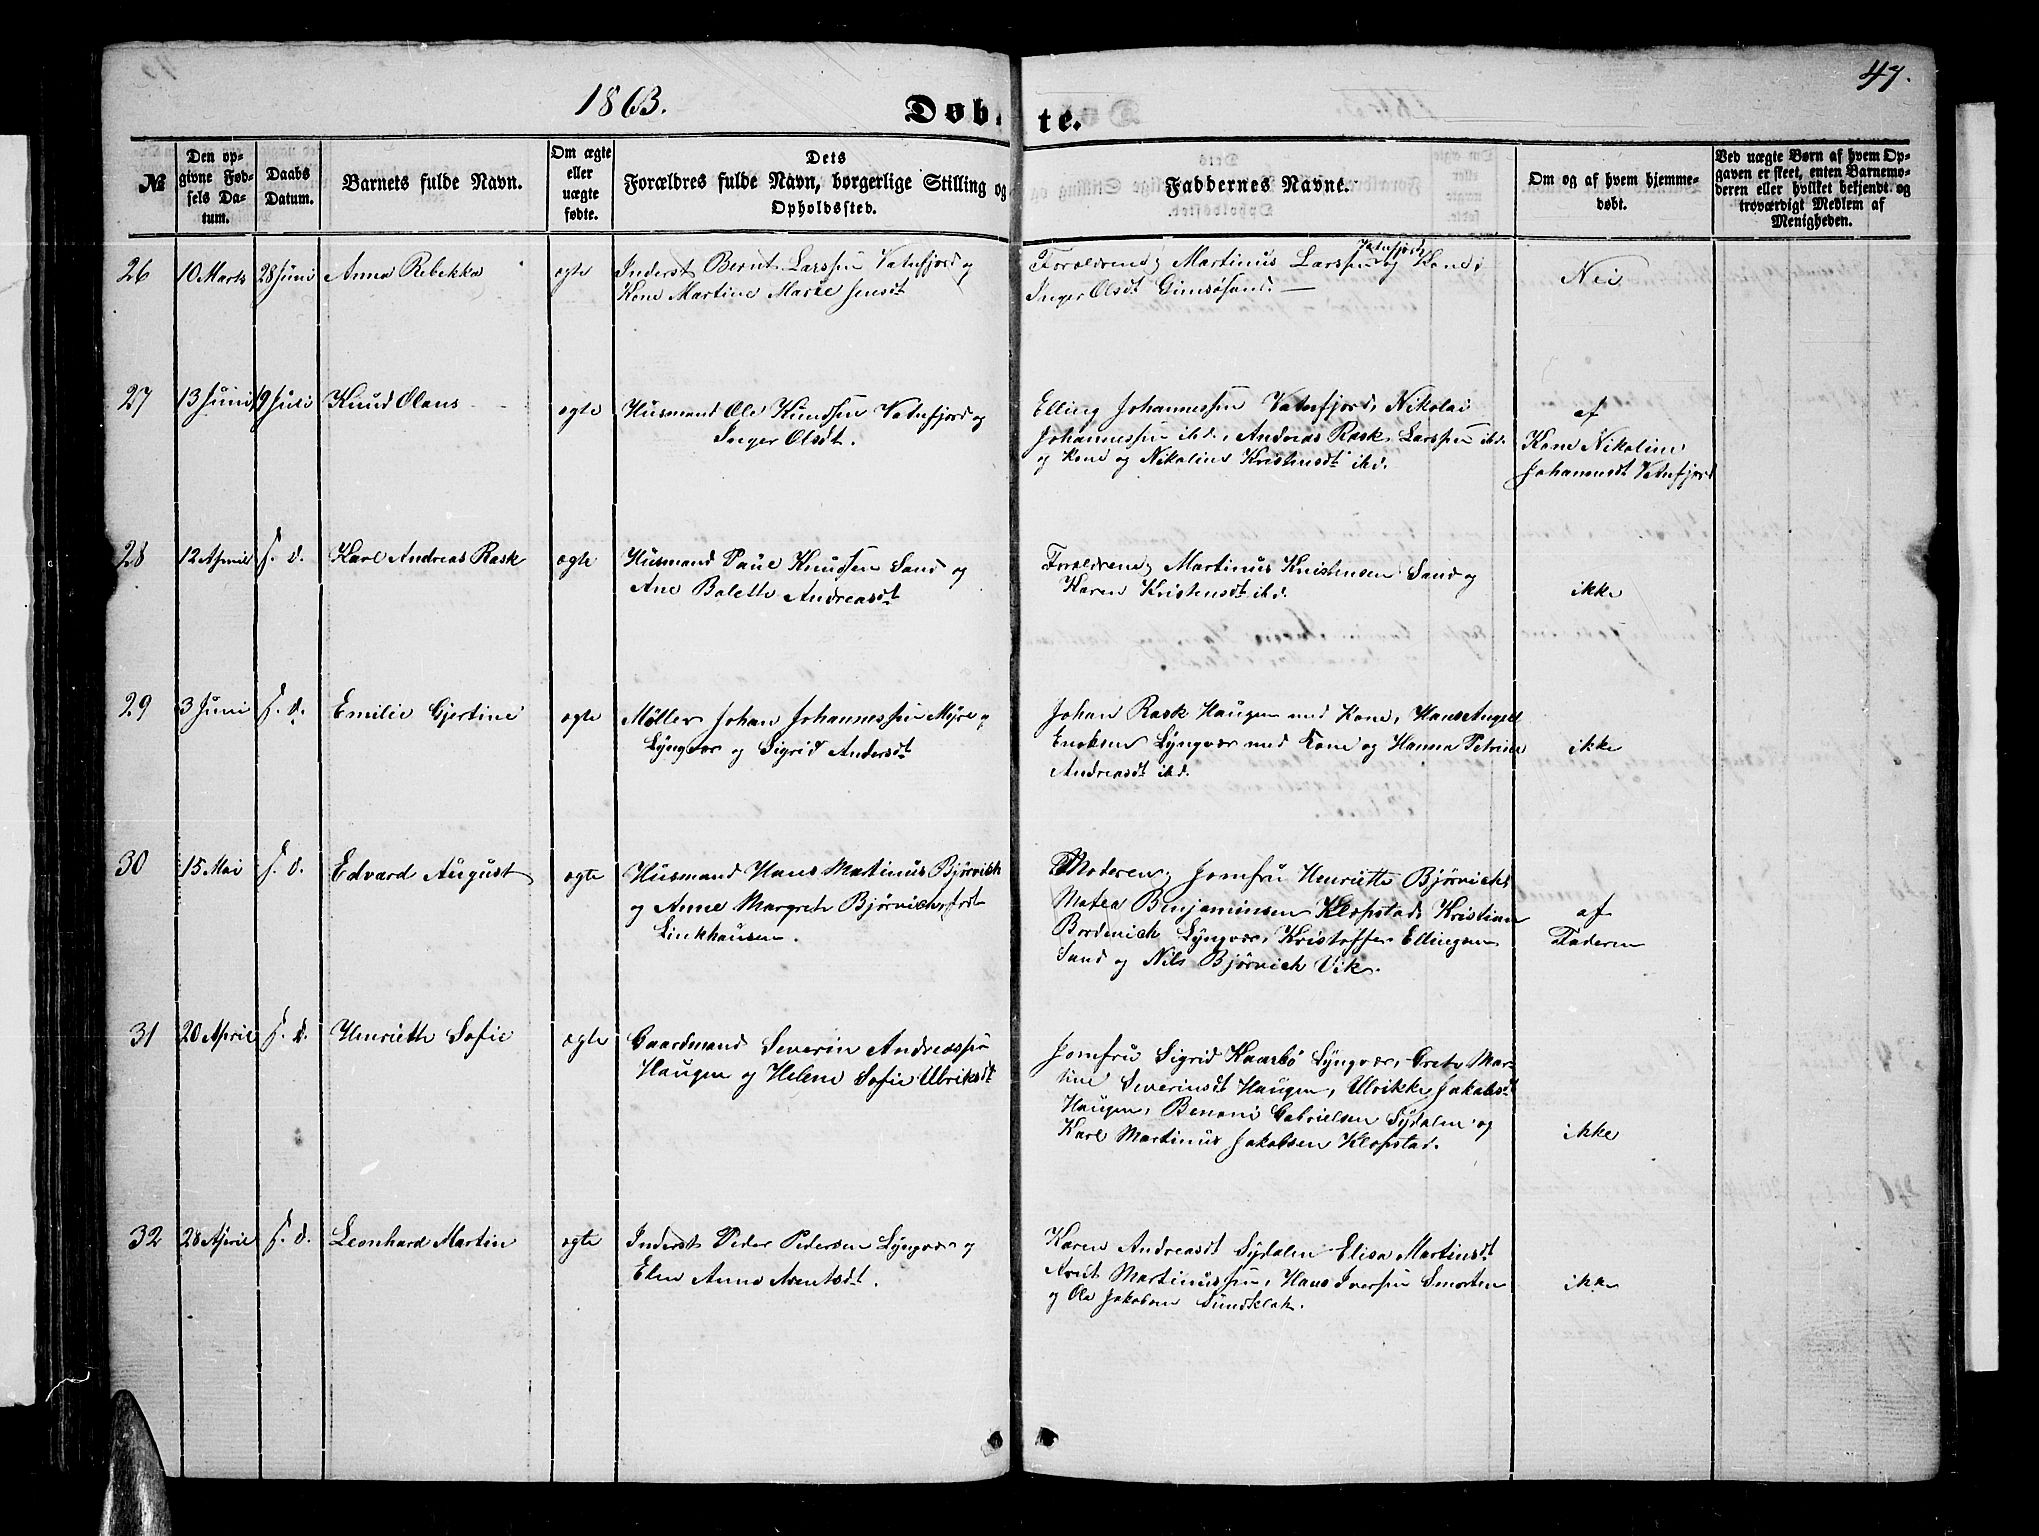 1863.
Døbte.
47.
№
Den op-
givne Fød-
sels Da-
tum.
Daabs
Datum.
Barnets fulde Navn.
Om ægte
eller
uægte
fødte.
Dets
Forældres fulde Navn, borgerlige Stilling og
Opholdssted.
Faddernes Navne.
Om og af hvem hjemme-
døbt.
Ved uægte Børn af hvem Op-
gaven er skeet, enten Barnemo-
deren eller hvilket bekjendt og
troværdigt Medlem af
Menigheden.
26
10 Marts
28 Juni
Anna Rebekka
ægte
Inderst Bernt Larssen Vatnfjord og
Kone Martine Marie Jensdt
Forældrene, Martinus Larssen Vatnfjord og Kone,
Inger Olsdt Gimsøsand.
Nei
27
13 Juni
19 Juli
Knud Olaus
ægte
Husmand Ole Knudsen Vatnfjord og
Inger Olsdt.
Elling Johannessen Vatnfjord, Nikolai
Johannessen ibd., Andreas Rask Larssen ibd.
og Kone og Nikoline Kristensdt ibd.
af
Kone Nikoline
Johannesdt Vatnfjord
28
12 April
s. d.
Karl Andreas Rask
ægte
Husmand Paul Knudsen Sand og
Ane Bolette Andreasdt
Forældrene, Martinus Kristensen Sand og
Karen Kristensdt ibd.
ikke
29
3 Juni
s. d.
Emilie Gjertine
ægte
Møller Johan Johannessen Myre,
Lyngvær og Sigrid Andersdt
Johan Rask Haugen med Kone, Hans Angel
Enoksen Lyngvær med Kone og Hanna Petrine
Andreasdt ibd.
ikke
30
15 Mai
s. d.
Edvard August
ægte
Husmand Hans Martinus Bjørvich
og Anne Margrete Bjørvich, født
Linkhausen.
Moderen, Jomfru Henriette Bjørvich,
Matea Benjaminsen Klopstad, Kristian
Borderich Lyngvær, Kristoffer Ellingsen
Sand og Nils Bjørvich Vik.
af
Faderen
31
20 April
s. d.
Henriette Sofie
ægte
Gaardmand Severin Andreassen
Haugen og Helene Sofie Ulriksdt
Jomfru Sigrid Kaarbø Lyngvær, Grete Mar-
tine Severinsdt Haugen, Ulrikke Jakobsdt
Haugen, Benoni Gabrielsen Sydalen og
Karl Martinus Jakobsen Klopstad.
ikke
32
28 April
s. d.
Leonhard Martin
ægte
Inderst Peder Pedersen Lyngvær og
Elen Anna Arentsdt.
Karen Andreasdt Sydalen Elisa Martinsdt
Arnt Martinussen, Hans Iversen Smorten
og Ole Jakobsen Sundklak.
ikke